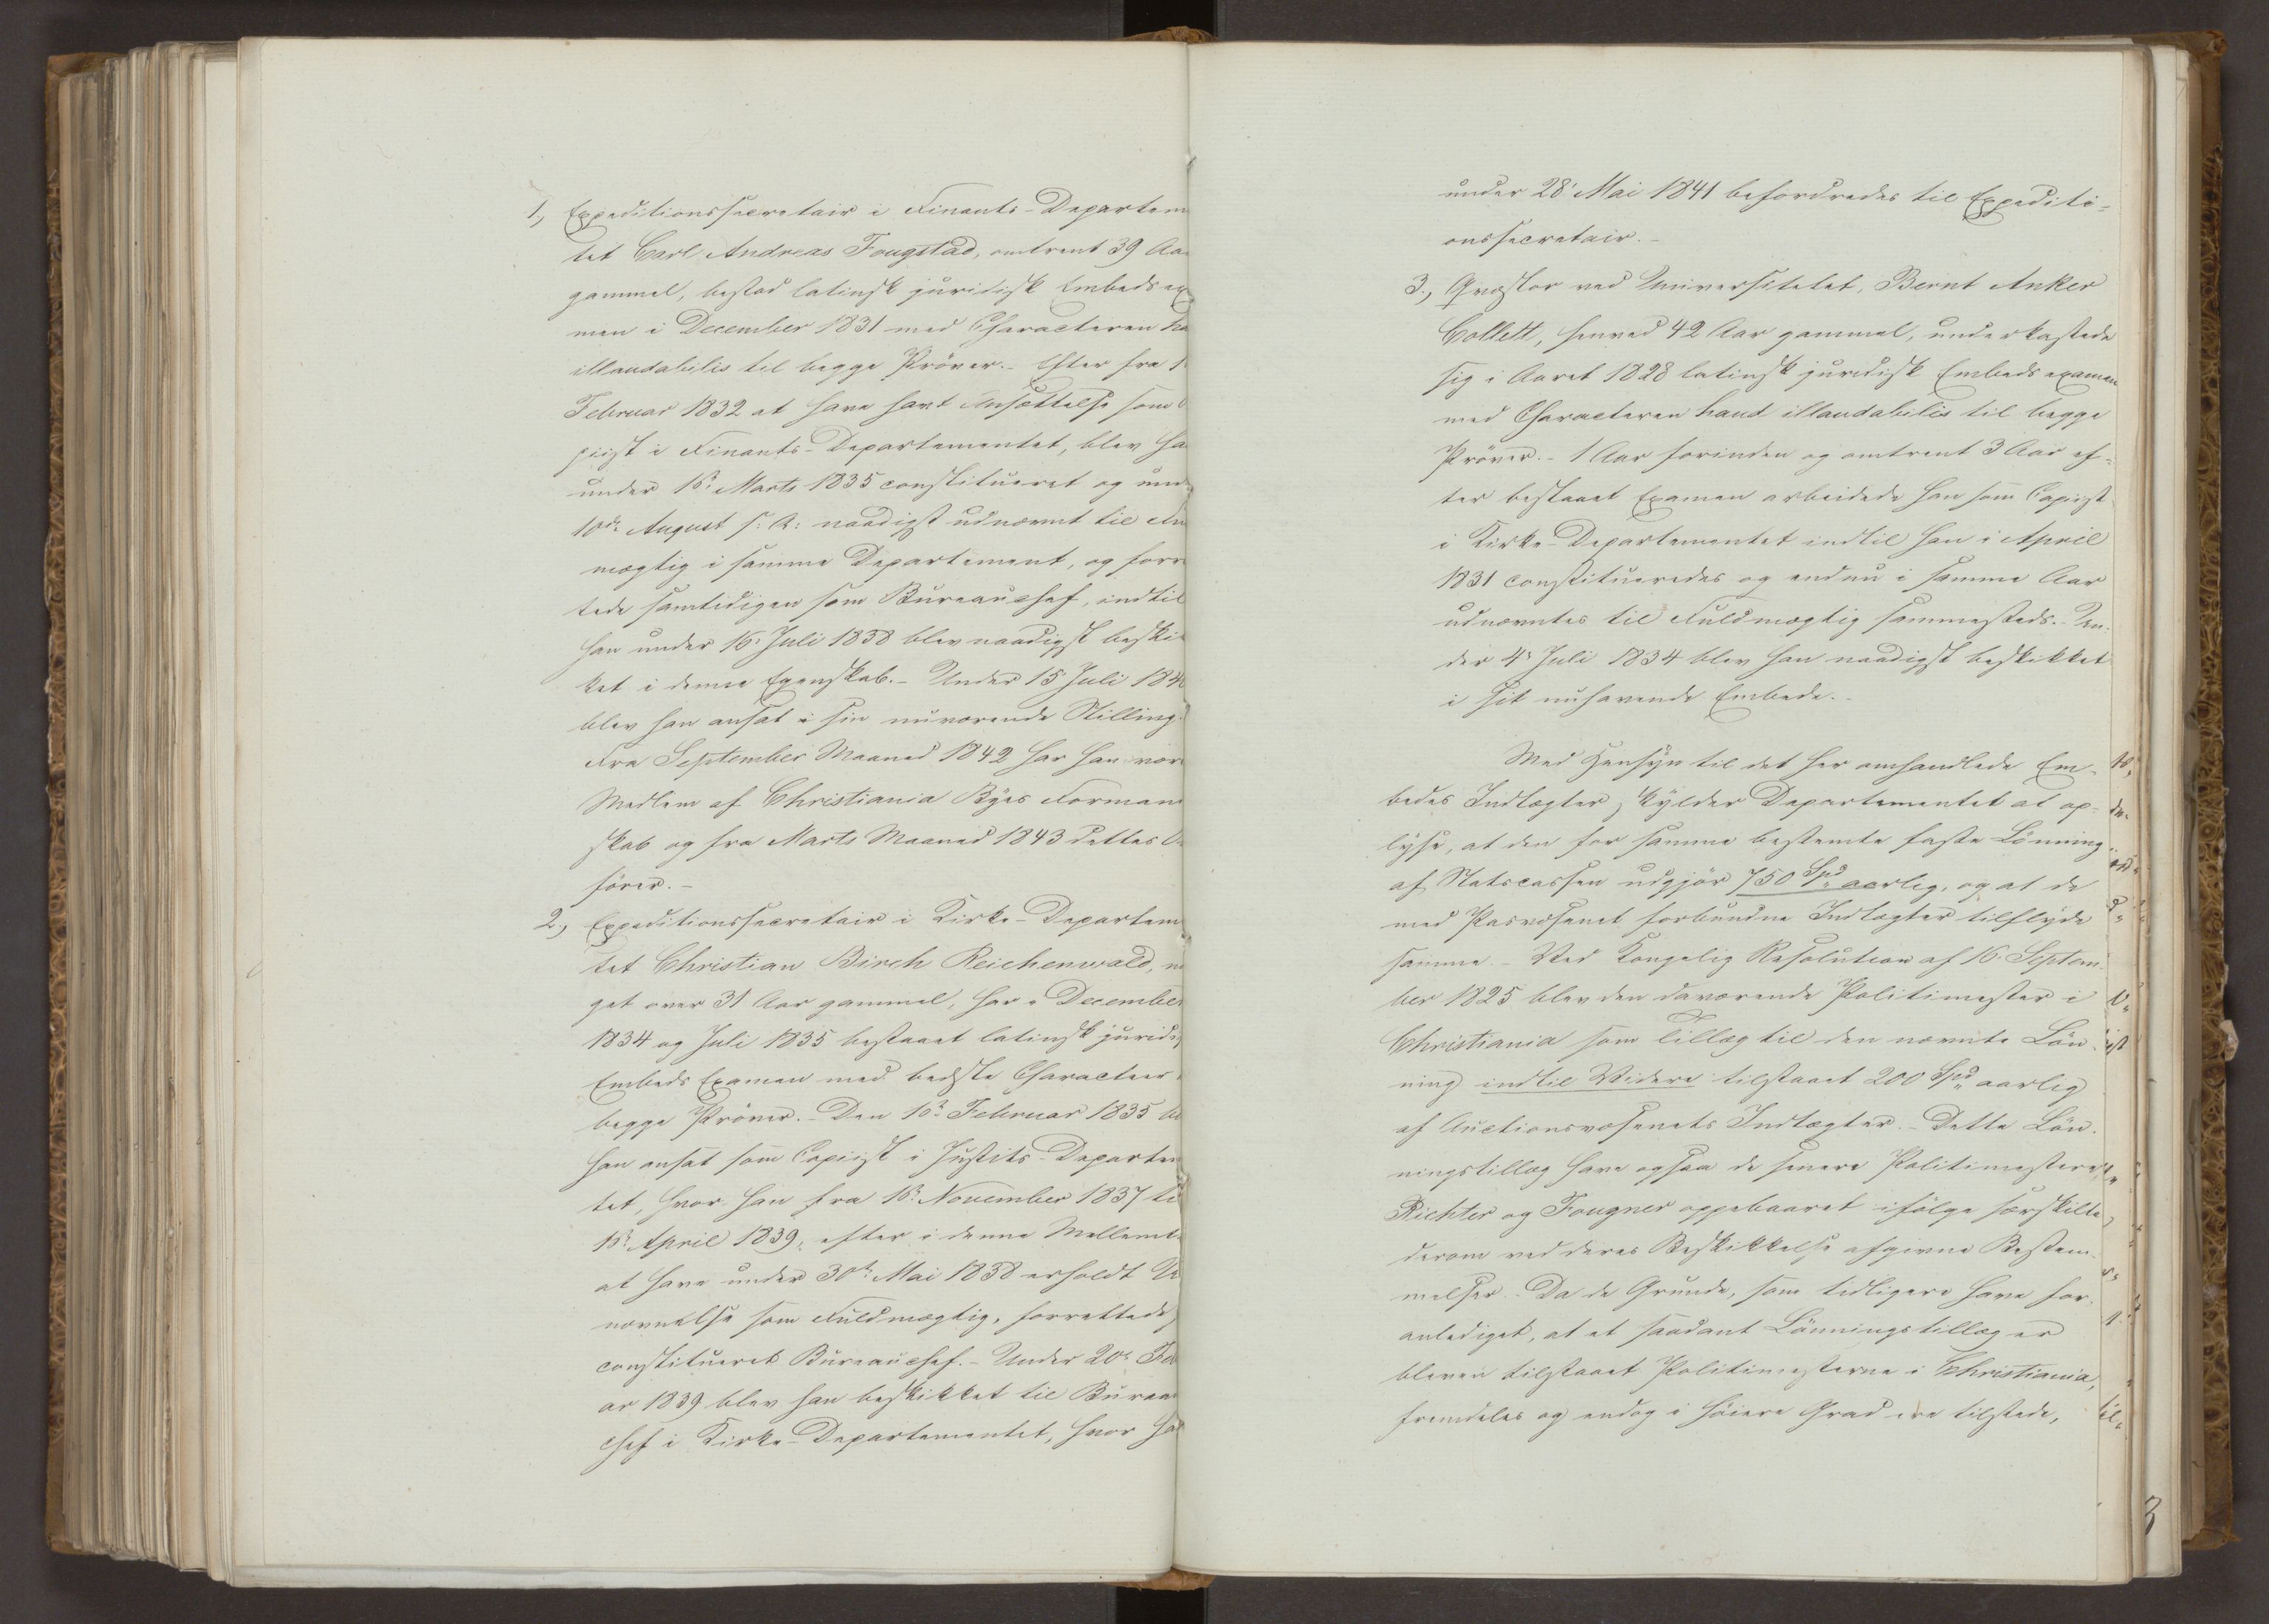 1, Expeditionssecretair i Finants-Departem
tet Carl Andreas Fougstad, omtrent 39 Aa
gammel, bestod latinsk juridisk Embedsex
men i December 1831 med Characteren ha
illaudabilis til begge Pröver. - Efter fra 1
Februar 1832 at have havt Ansættelse som C
piist i Finants-Departementet, blev ha
under 16de Marts 1835 constitueret og und
10de August s: A: naadigst udnævnt til Fu
mægtig i samme Departement, og forre
tede samtidigen som Bureauchef, indtil
han under 16. Juli 1838 blev naadigst beski
ket i denne Egenskab. - Under 15 Juli 184
blev han ansat i sin nuværende Stilling.
Fra September Maaned 1842 har han vær
Medlem af Christiania Byes Forman
skab og fra Marts Maaned 1843 dettes O
förer. -
2, Expeditionssecretair i Kirke-Departem
tet Christian Birch Reichenwald, n
get over 31 Aar gammel, har i December
1834 og Juli 1835 bestaaet latinsk juridi
Embeds Examen med bedste Characteer
begge Pröver. - Den 16de Februar 1835 b
han ansat som Copiist i Justits-Departem
tet, hvor han fra 16de November 1837 ti
15de April 1839, efter i denne Mellemti
at have under 30te Mai 1838 erholdt U
nævnelse som Fuldmægtig, forrettede
constitueret Bureauchef. - Under 20de Fe
ar 1839 blev han beskikket til Bureau
chef i Kirke-Departementet, hvor ha
under 28' Mai 1841 befordredes til Expediti=
onssecretair. -
3, Qvæstor ved Universitetet, Bernt Anker
Collett, henved 42 Aar gammel, underkastede
sig i Aaret 1828 latinsk juridisk Embedsexamen
med Characteren haud illaudabilis til begge
Pröver. - 1 Aar forinden og omtrent 3 Aar ef=
ter bestaaet Examen arbeidede han som Copiist
i Kirke-Departementet indtil han i April
1831 constitueredes og endnu i samme Aar
udnævntes til Fuldmægtig sammesteds. - Un-
der 4de Juli 1834 blev han naadigst beskikket
i sit nuhavende Embede. -
Med Hensyn til det her omhandlede Em-
bedes Indtægter, skylder Departementet at op=
lyse, at den for samme bestemte faste Lönning
af Statscassen udgjör 750 Spd aarlig, og at de
med Pasvæsenet forbundne Indtægter tilflyde
samme. - Ved Kongelig Resolution af 16. Septem-
ber 1825 blev den daværende Politimester i
Christiania som Tillæg til den nævnte Lön-
ning indtil Videre tilstaaet 200 Spd aarlig
af Auctionsvæsenets Indtægter. - Dette Lön-
ningstillæg have ogsaa de senere Politimestere,
Richter og Fougner oppebaaret ifölge særskilte,
derom ved deres Beskikkelse afgivne Bestem-
melser. - Da de Grunde, som tidligere have for-
anlediget, at et saadant Lönningstillæg er
bleven tilstaaet Politimesterne i Christiania,
fremdeles og endog i höiere Grad ere tilstede,